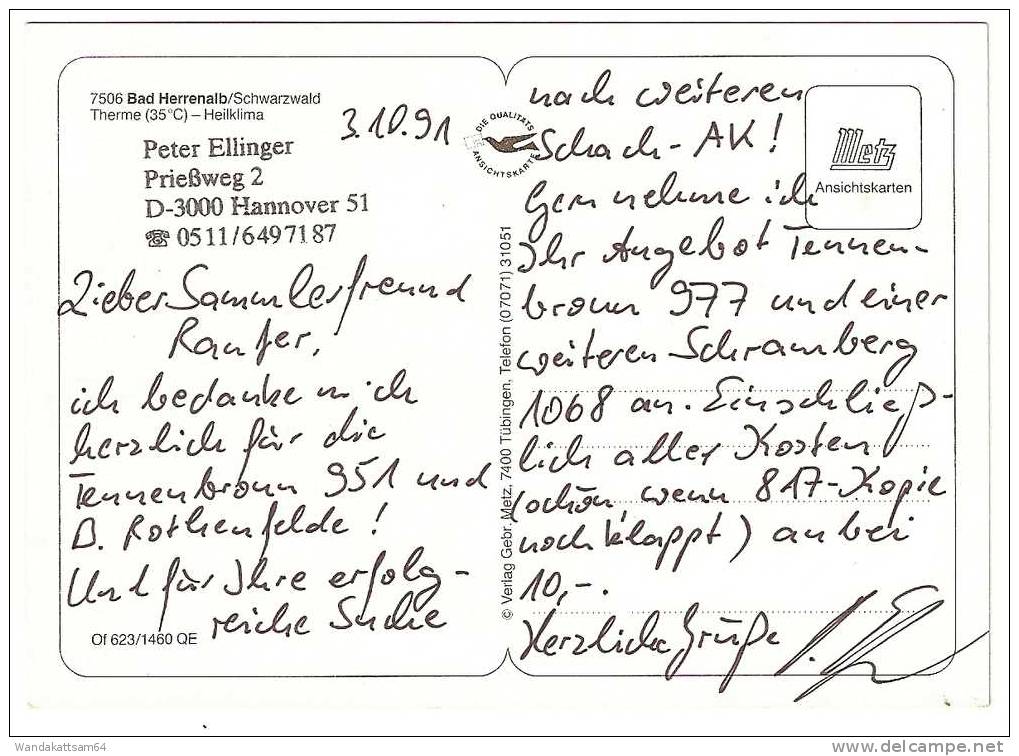 7506 Bad Herrenalb/Schwarzwald
Therme (35°C) – Heilklima
Peter Ellinger
Prießweg 2
D-3000 Hannover 51
☎ 0511/6497187
3.10.91
Lieber Sammlerfreund
Raufer,
ich bedanke mich
herzlich für die
Tennenbronn 951 und
B. Rothenfelde!
Und für Ihre erfolg-
reiche Suche
Of 623/1460 QE
DIE QUALITÄTS
ANSICHTSKARTE
© Verlag Gebr. Metz, 7400 Tübingen, Telefon (07071) 31051
nach weiteren
Schach-AK!
Gern nehme ich
Ihr Angebot Tennen-
bronn 977 und einer
weiteren Schramberg
1068 an. Einschließ-
lich aller Kosten
(schön, wenn 817-Kopie
noch klappt) anbei
10,-.
Herzliche Grüße
Metz
Ansichtskarten
Wandakattsam64
www.delcampe.net